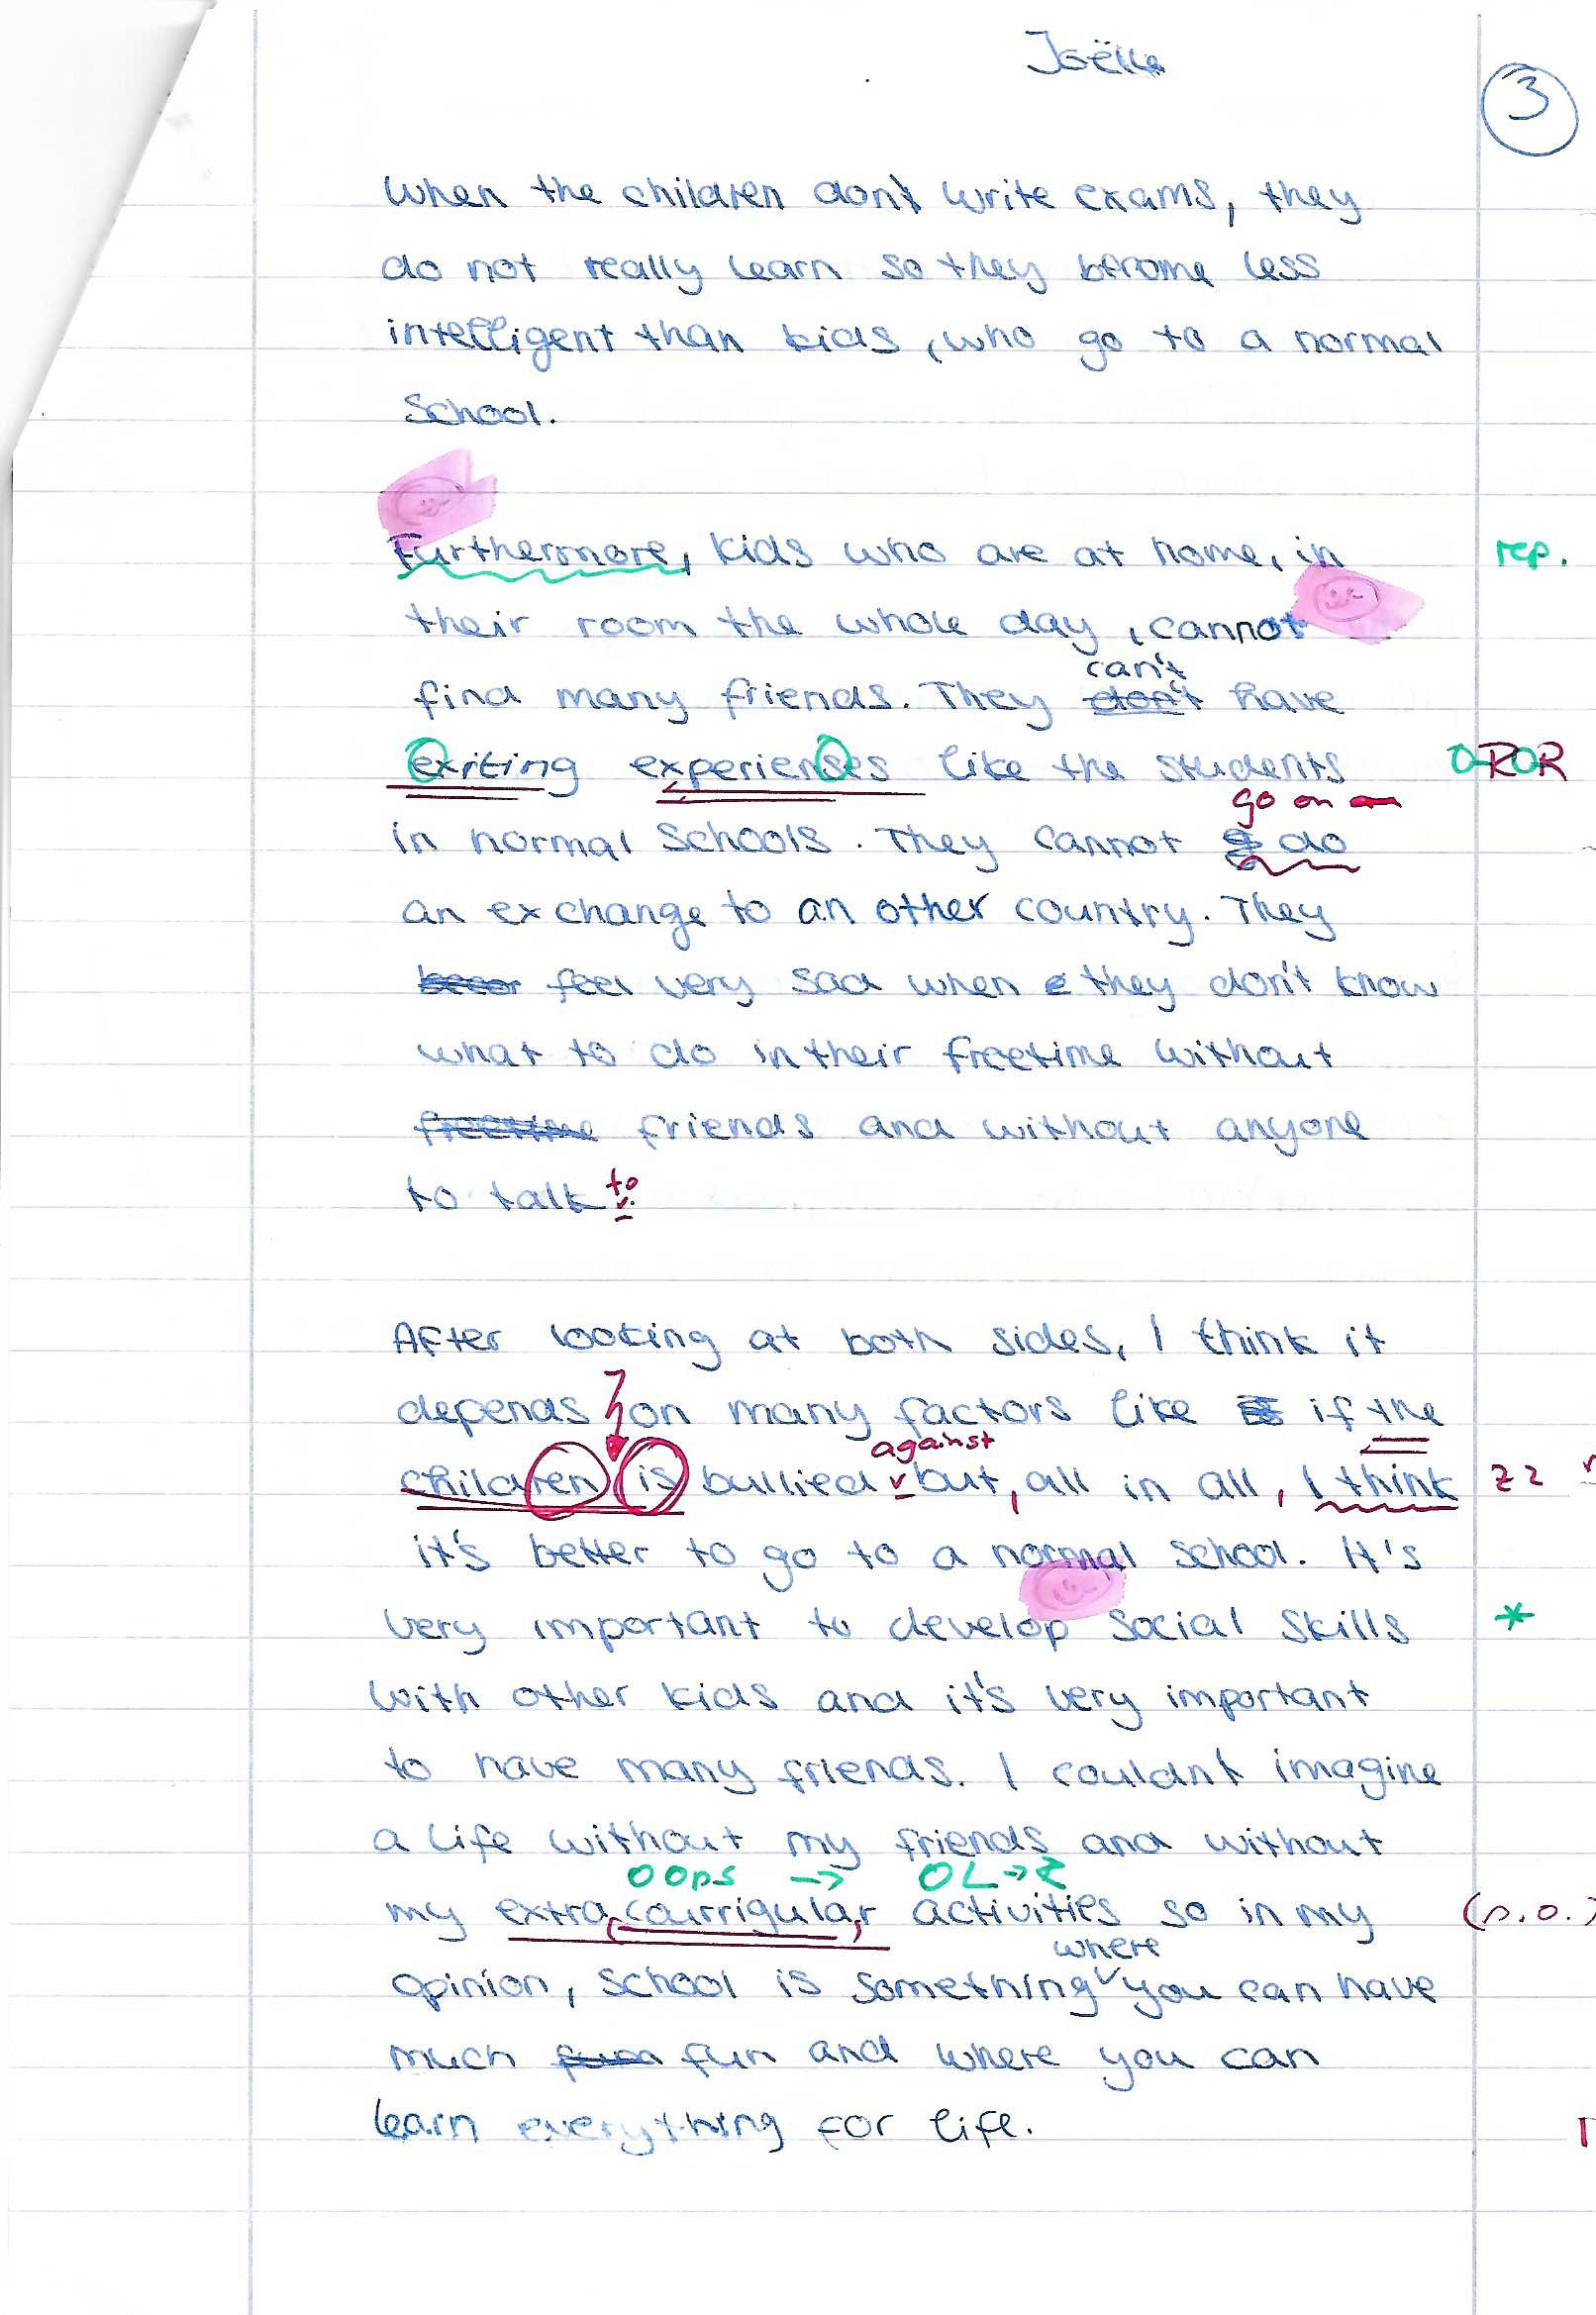 Joëlle
3
When the children don't write exams, they
do not really learn so they become less
intelligent than kids, who go to a normal
school.
Furthermore, kids who are at home, in rep.
their room the whole day, cannot
can't
find many friends. They don't have
exiting experienses like the students R R
go on
in normal schools. They cannot do
an exchange to an other country. They
feel very sad when they don't know
what to do in their freetime without
freetime friends and without anyone
to talk to.
After looking at both sides, I think it
depends on many factors like if the
against
children is bullied but, all in all, I think
it's better to go to a normal school. It's
very important to develop social skills *
with other kids and it's very important
to have many friends. I couldn't imagine
a life without my friends and without
oops → OL→Z
my extra courrigular activities so in my (n.o.)
where
opinion, school is something you can have
much fun and where you can
learn everything for life.